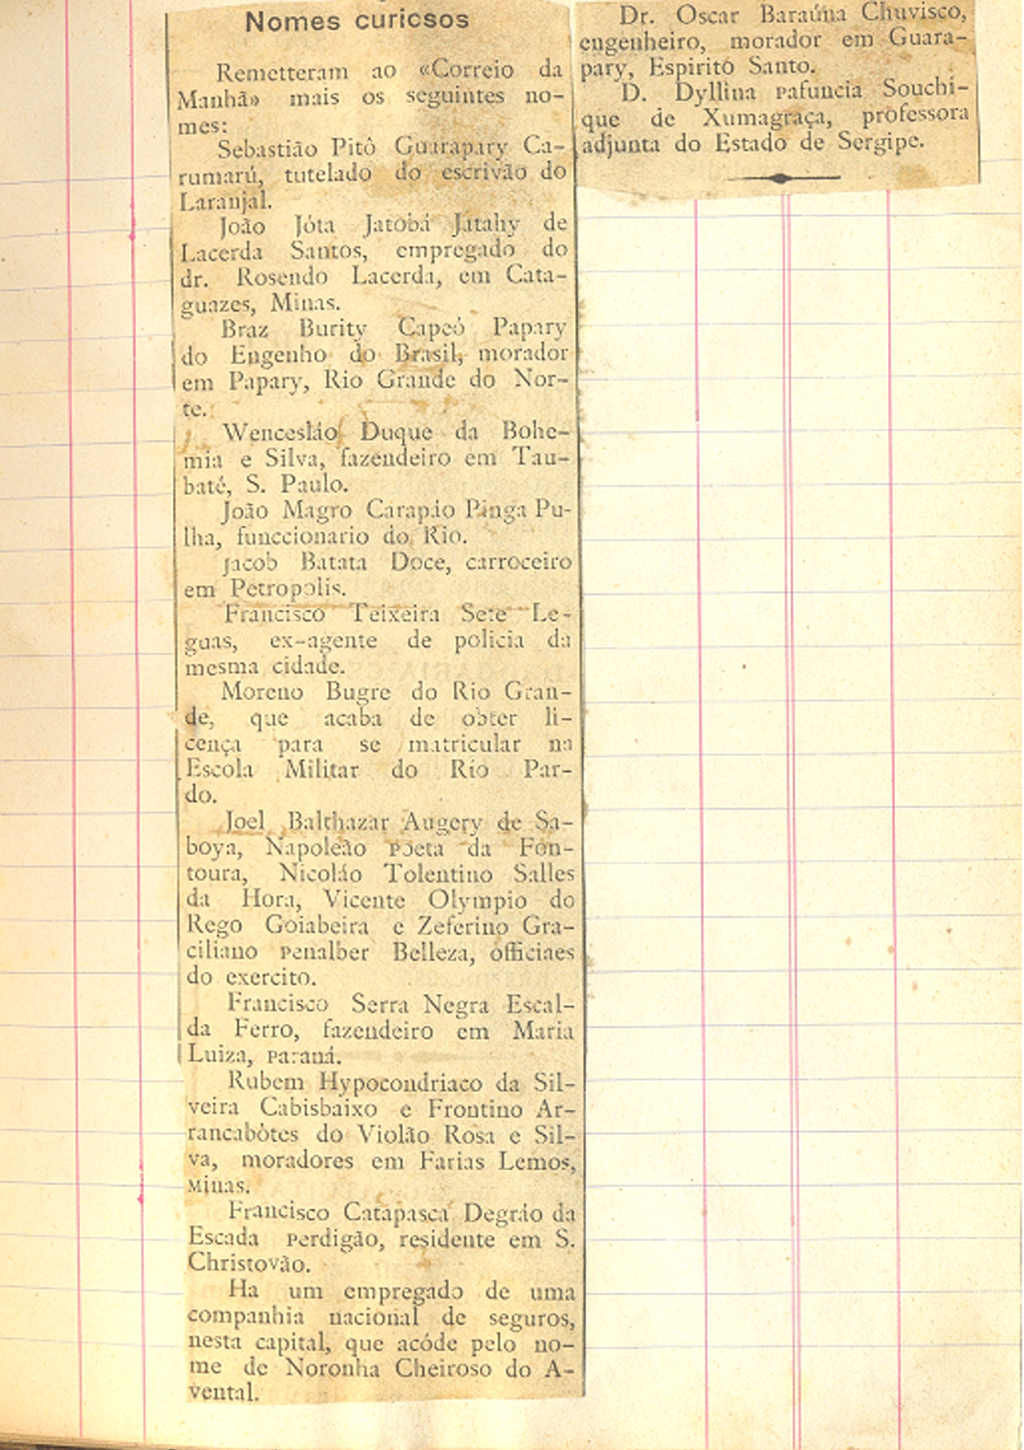 Nomes curiosos
Remetteram ao «Correio da
Manhã» mais os seguintes no-
mes:
Sebastião Pitô Guarapary Ca-
rumarú, tutelado do escrivão do
Laranjal.
João Jóta Jatobá Jatahy de
Lacerda Santos, empregado do
dr. Rosendo Lacerda, em Cata-
guazes, Minas.
Braz Burity Capeó Papary
do Engenho do Brasil, morador
em Papary, Rio Grande do Nor-
te.
Wencesláo Duque da Bohe-
mia e Silva, fazendeiro em Tau-
baté, S. Paulo.
João Magro Carapáo Pinga Pu-
lha, funccionario do Rio.
Jacob Batata Doce, carroceiro
em Petropolis.
Francisco Teixeira Sete Le-
guas, ex-agente de policia da
mesma cidade.
Moreno Bugre do Rio Gran-
de, que acaba de obter li-
cença para se matricular na
Escola Militar do Rio Par-
do.
Joel Balthazar Augery de Sa-
boya, Napoleão Poeta da Fon-
toura, Nicoláo Tolentino Salles
da Hora, Vicente Olympio do
Rego Goiabeira e Zeferino Gra-
ciliano Penalber Belleza, officiaes
do exercito.
Francisco Serra Negra Escal-
da Ferro, fazendeiro em Maria
Luiza, Paraná.
Rubem Hypocondriaco da Sil-
veira Cabisbaixo e Frontino Ar-
rancabótes do Violão Rosa e Sil-
va, moradores em Farias Lemos,
Minas.
Francisco Catapasca Degráo da
Escada Perdigão, residente em S.
Christovão.
Ha um empregado de uma
companhia nacional de seguros,
nesta capital, que acóde pelo no-
me de Noronha Cheiroso do A-
vental.
Dr. Oscar Baraúna Chuvisco,
engenheiro, morador em Guara-
pary, Espirito Santo.
D. Dyllina Pafuncia Souchi-
que de Xumagraça, professora
adjunta do Estado de Sergipe.